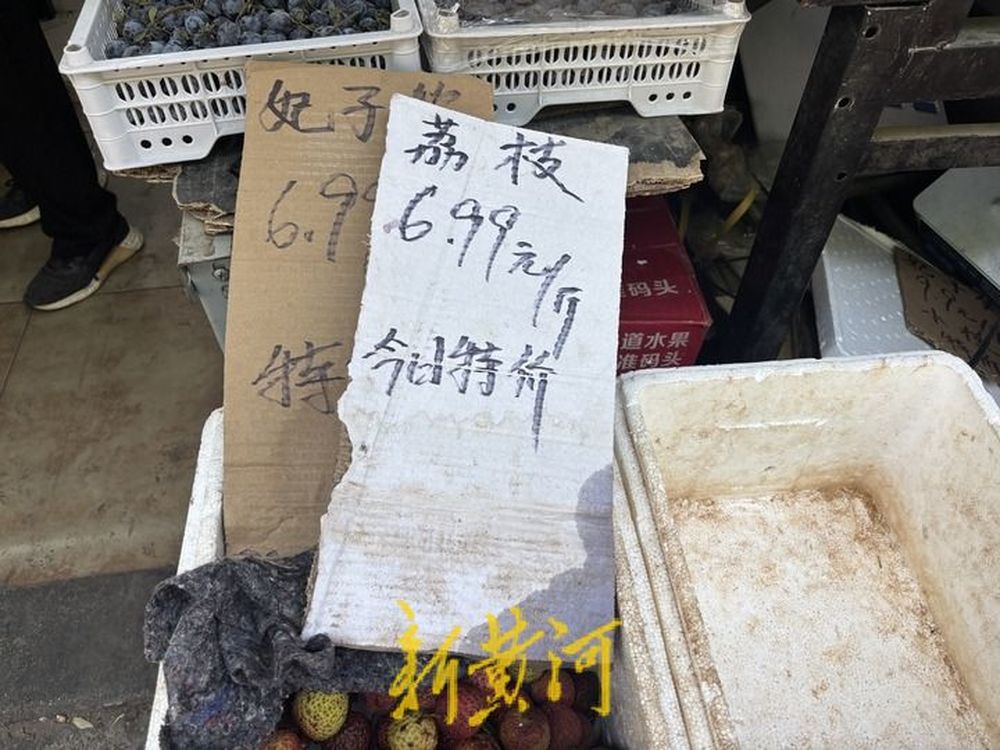 妃子
6.99
特
荔枝
6.99元/斤
今日特价
码头
道水果
准码头
新黄河